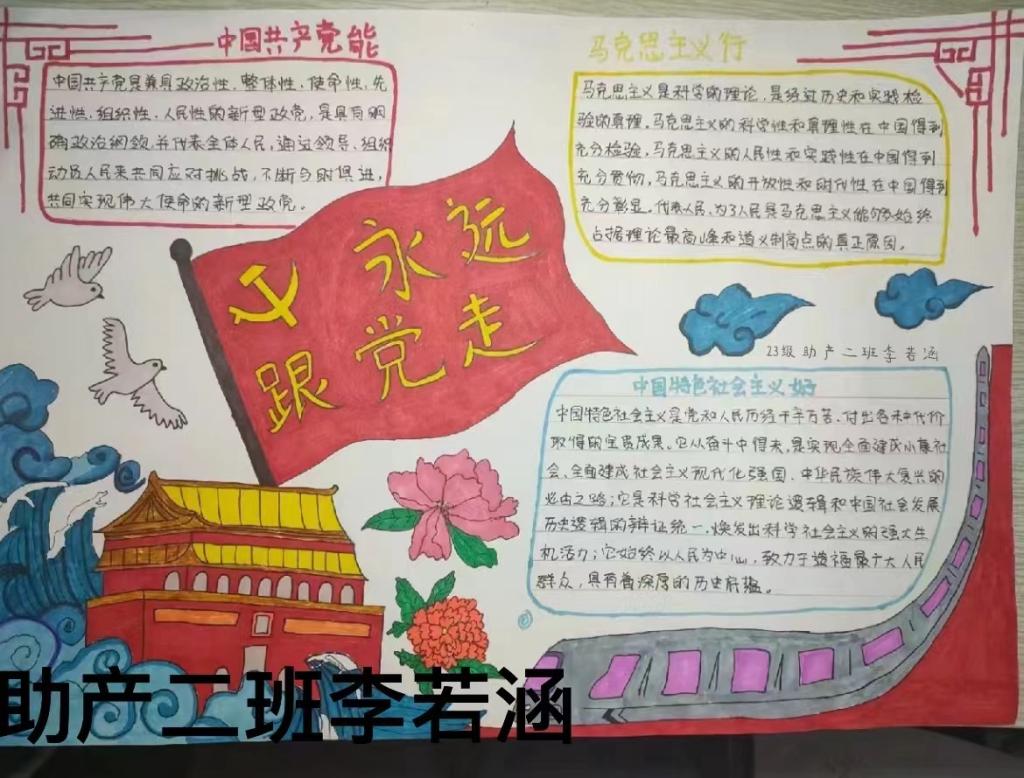 中国共产党能
中国共产党是兼具政治性、整体性、使命性、先
进性、组织性、人民性的新型政党，是具有明
确政治纲领并代表全体人民，通过领导、组织
动员人民来共同应对挑战，不断与时俱进，
共同实现伟大使命的新型政党。
马克思主义行
马克思主义是科学的理论，是经过历史和实践检
验的真理。马克思主义的科学性和真理性在中国得到
充分检验，马克思主义的人民性和实践性在中国得到
充分贯彻，马克思主义的开放性和时代性在中国得到
充分彰显。代表人民、为了人民是马克思主义能够始终
占据理论最高峰和道义制高点的真正原因。
永远
跟党走
23级助产二班李若涵
中国特色社会主义好
中国特色社会主义是党和人民历经千辛万苦、付出各种代价
取得的宝贵成果。它从奋斗中得来，是实现全面建成小康社
会、全面建成社会主义现代化强国、中华民族伟大复兴的
必由之路；它是科学社会主义理论逻辑和中国社会发展
历史逻辑的辩证统一，焕发出科学社会主义的强大生
机活力；它始终以人民为中心，致力于造福最广大人民
群众，具有着深厚的历史底蕴。
助产二班李若涵